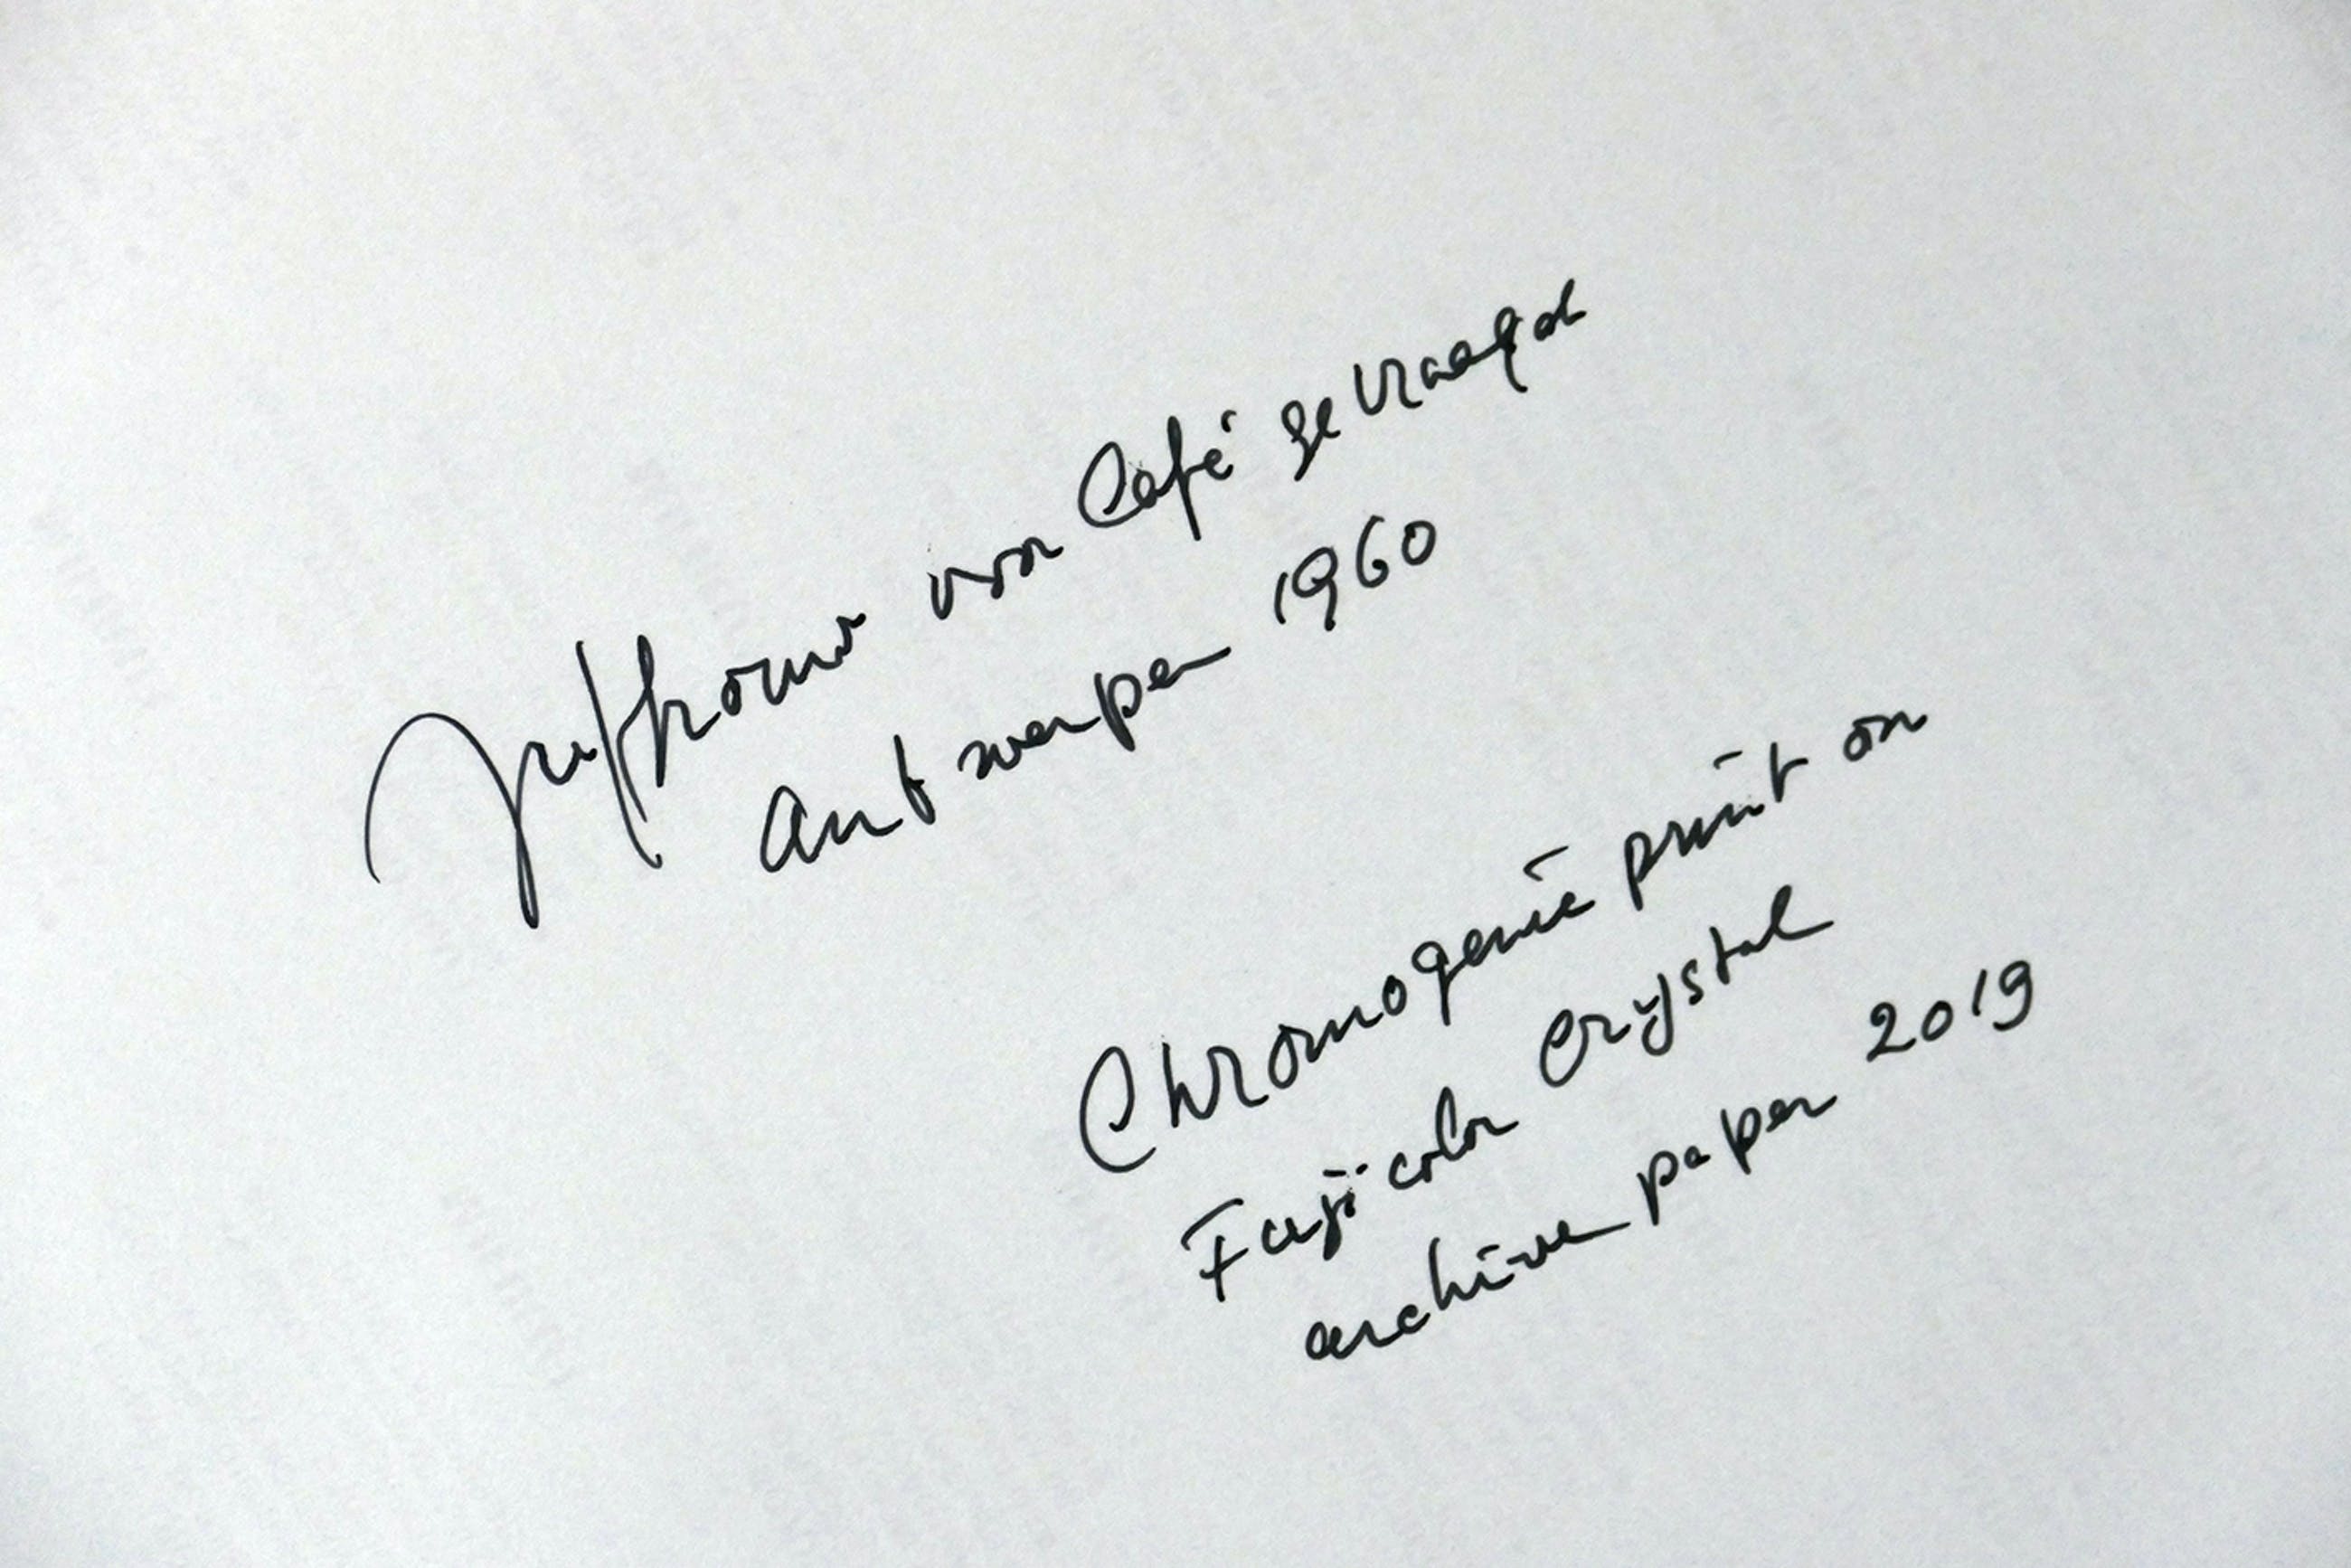 Juffrouw voor Café gevraagd
Antwerpen 1960
Chromogenic print on
Fujicolor Crystal
archive paper 2019